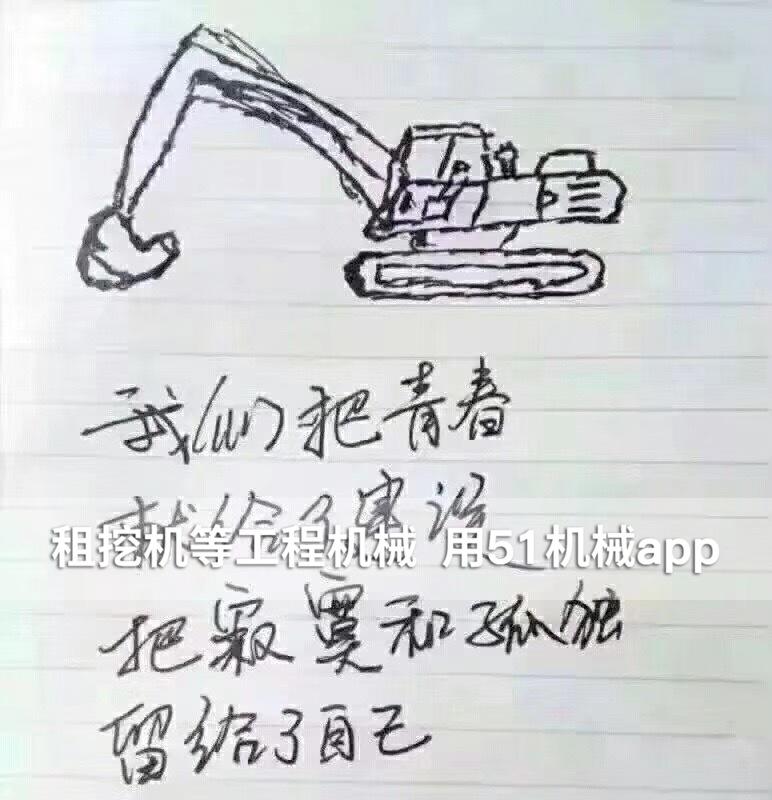 我们把青春
献给了
租挖机等工程机械 用51机械app
把寂寞和孤独
留给了自己